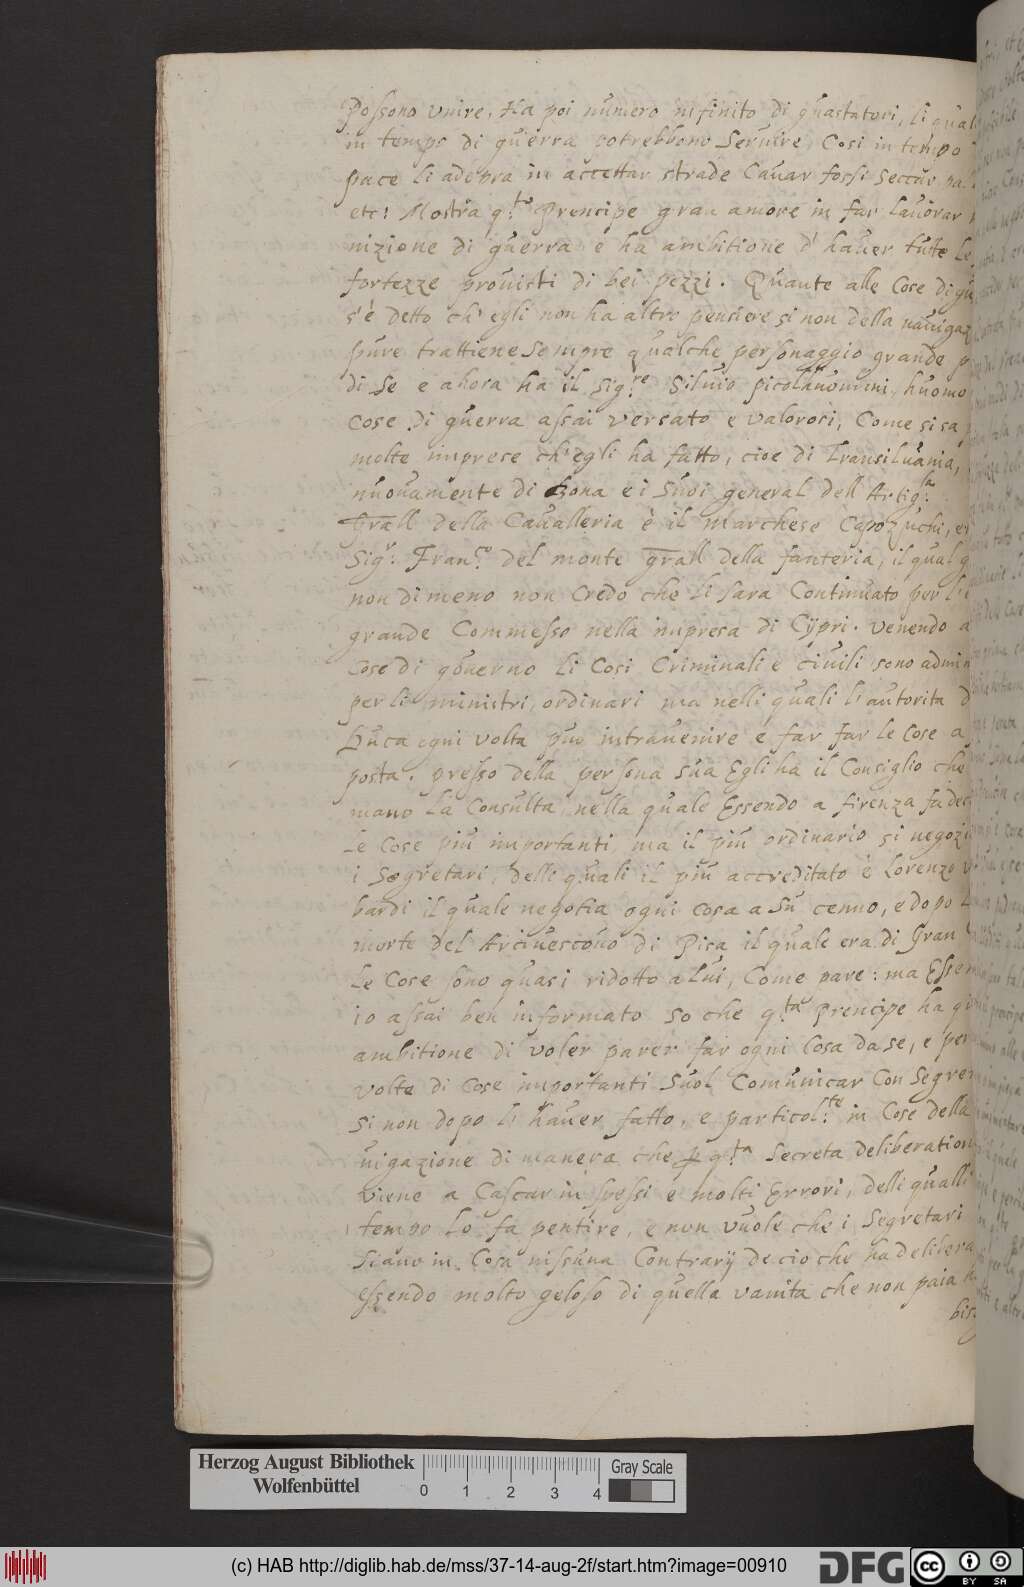 Possono unire, Ha poi numero infinito di guastatori, li qual
in tempo di guerra potrebbono Seruire, Cosi in tempo
pace li adopra in accettar strade Cauar fossi Seccar pal
etc: Mostra q.to Prencipe gran amore in far Lauorar
nizione di guerra è ha ambitione d' hauer tutte le
fortezze prouisti di bei pezzi. Quante alle Cose di gu
s'è detto ch' egli non ha altro pensiere si non della nauigaz
pure trattiene Sempre qualche personaggio grande p
di Se e ahora ha il Sig.re Siluio Picolauomini, huomo
cose di guerra assai versato e valorosi, Come si sa p
molte imprese ch' egli ha fatto, cioe di Transiluania,
nuouamente di Bona e i Suoi general dell Artig.la
Grall della Caualleria è il Marchese Capozuchi, e
Sigr: Fran.co del monte grall della fanteria, il qual g
non di meno non Credo che li sara Continuato per l'
grande Commesso nella impresa di Cijpri. venendo a
Cose di gouerno li Cosi Criminali e ciuili sono admin
per li ministri, ordinari ma nelli quali l' autorita d
Duca ogni volta puo intrauenire e far far le Cose a
posta. presso della persona sua Egli ha il Consiglio che
mano La Consulta, nella quale Essendo a firenza fa dec
Le Cose piu importanti, ma il piu ordinario si negozi
i Segretari, delli quali il piu accreditato è Lorenzo V
bardi il quale negotia ogni cosa a Su cenno, e dopo L
morte del Arciuescouo di Pisa il quale era di Gran
Le Cose sono quasi ridotto a Lui, Come pare: ma Essen
io assai ben informato so che q.ta Prencipe ha gr
ambitione di voler parer far ogni Cosa da se, e per
volte di Cose importanti Suol Comunicar Con Segre
si non dopo li hauer fatto, e particol.te in Cose della
uigazione di manera che p q.ta Secreta deliberation
viene a Cascar in spessi e molti Errori, delli qualli
tempo Lo fa pentire, e non vuole che i Segretari
siano in Cosa nissuna Contrarij de cio che ha delibera
Essendo molto geloso di quella vanita che non paia h
bis
Herzog August Bibliothek
Wolfenbüttel
0 1 2 3 4
Gray Scale
(c) HAB http://diglib.hab.de/mss/37-14-aug-2f/start.htm?image=00910
DFG
cc
BY SA